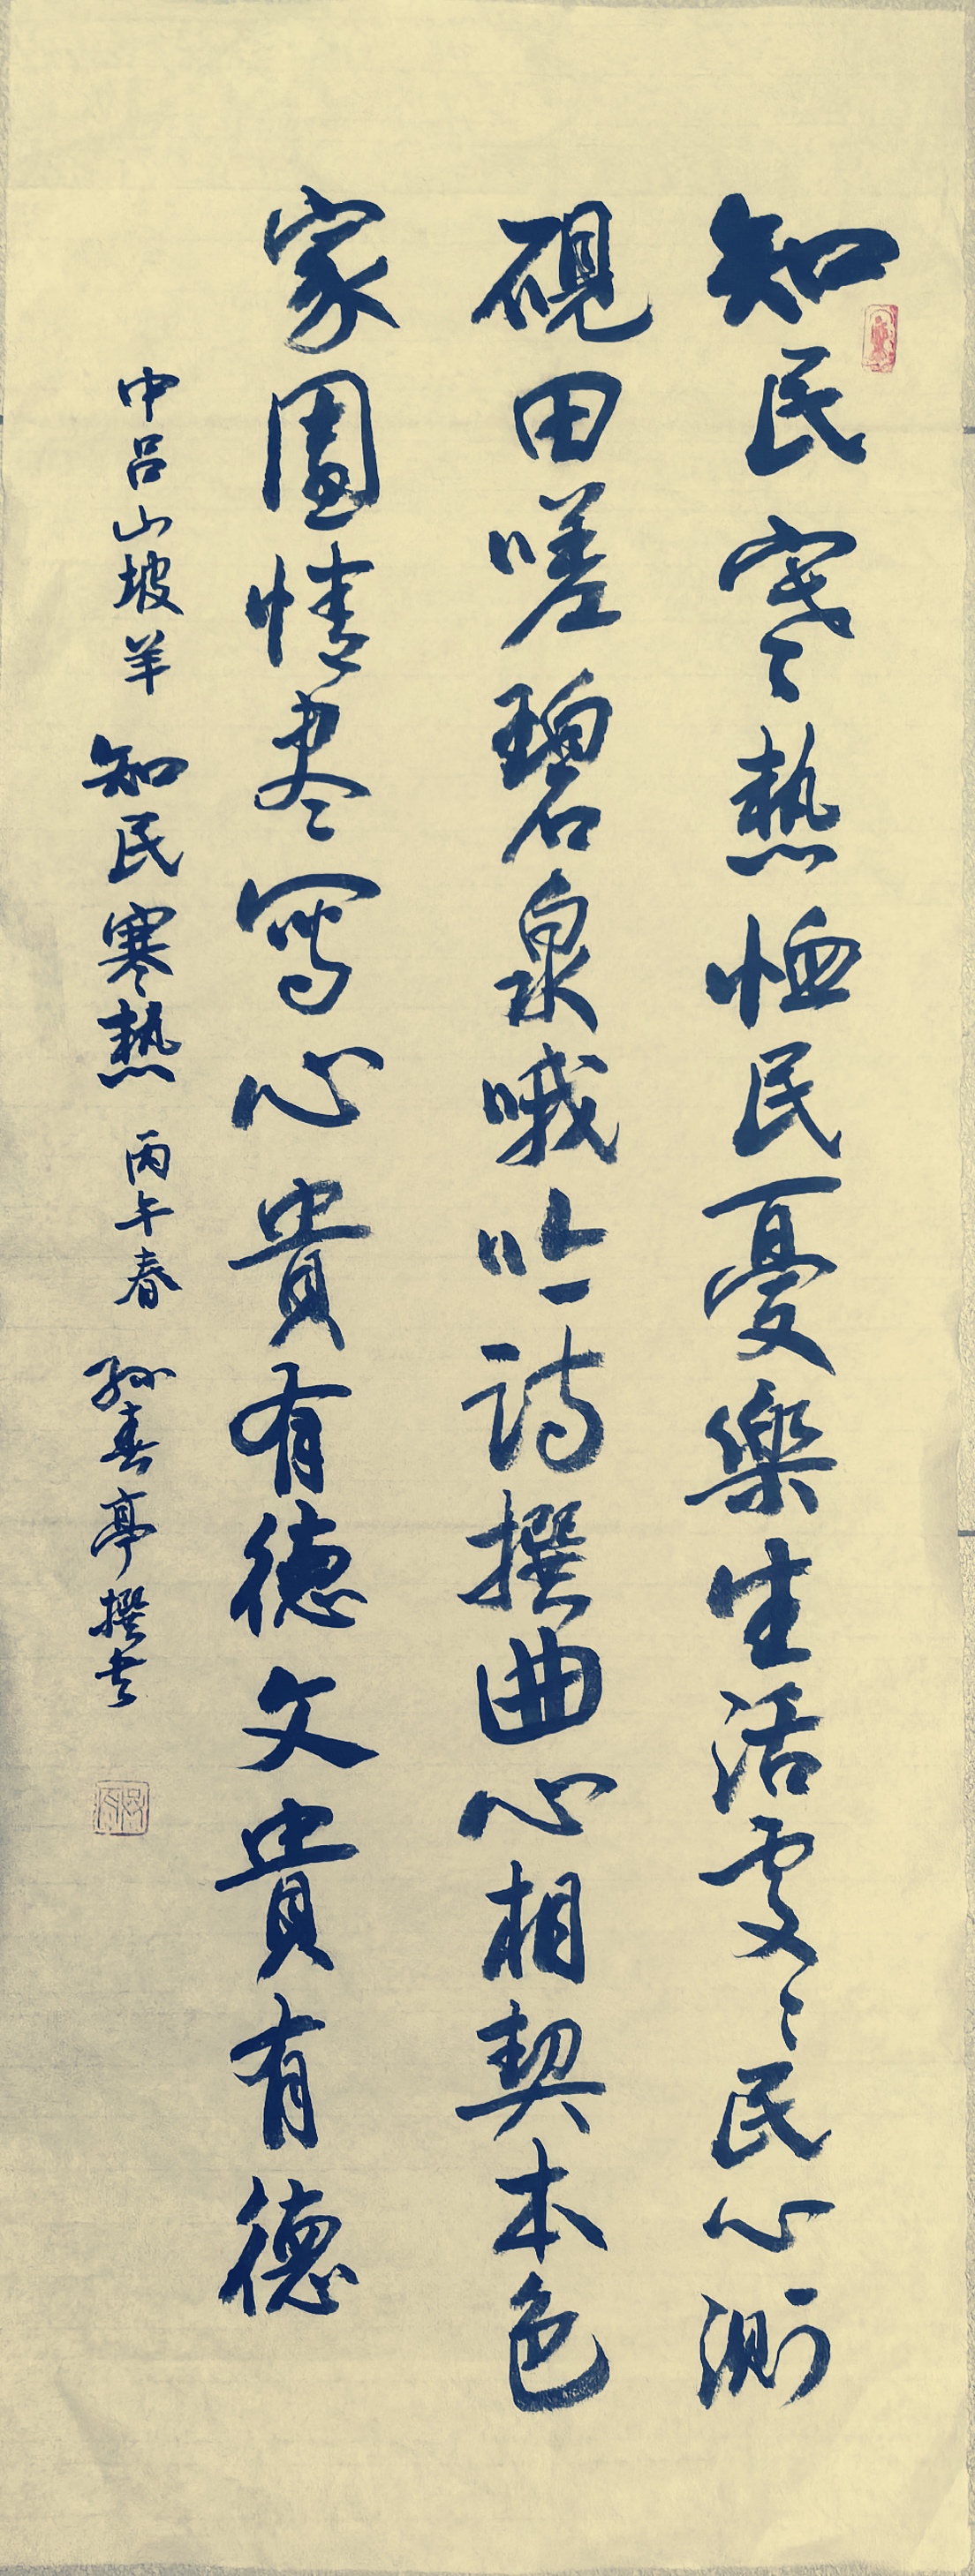 知民寒熱恤民憂樂生活處處民心測
硯田嗟碧泉哦吟詩撰曲心相契本色
家園情盡寫心貴有德文貴有德
中吕山坡羊 知民寒熱 丙午春 孫春亭撰书